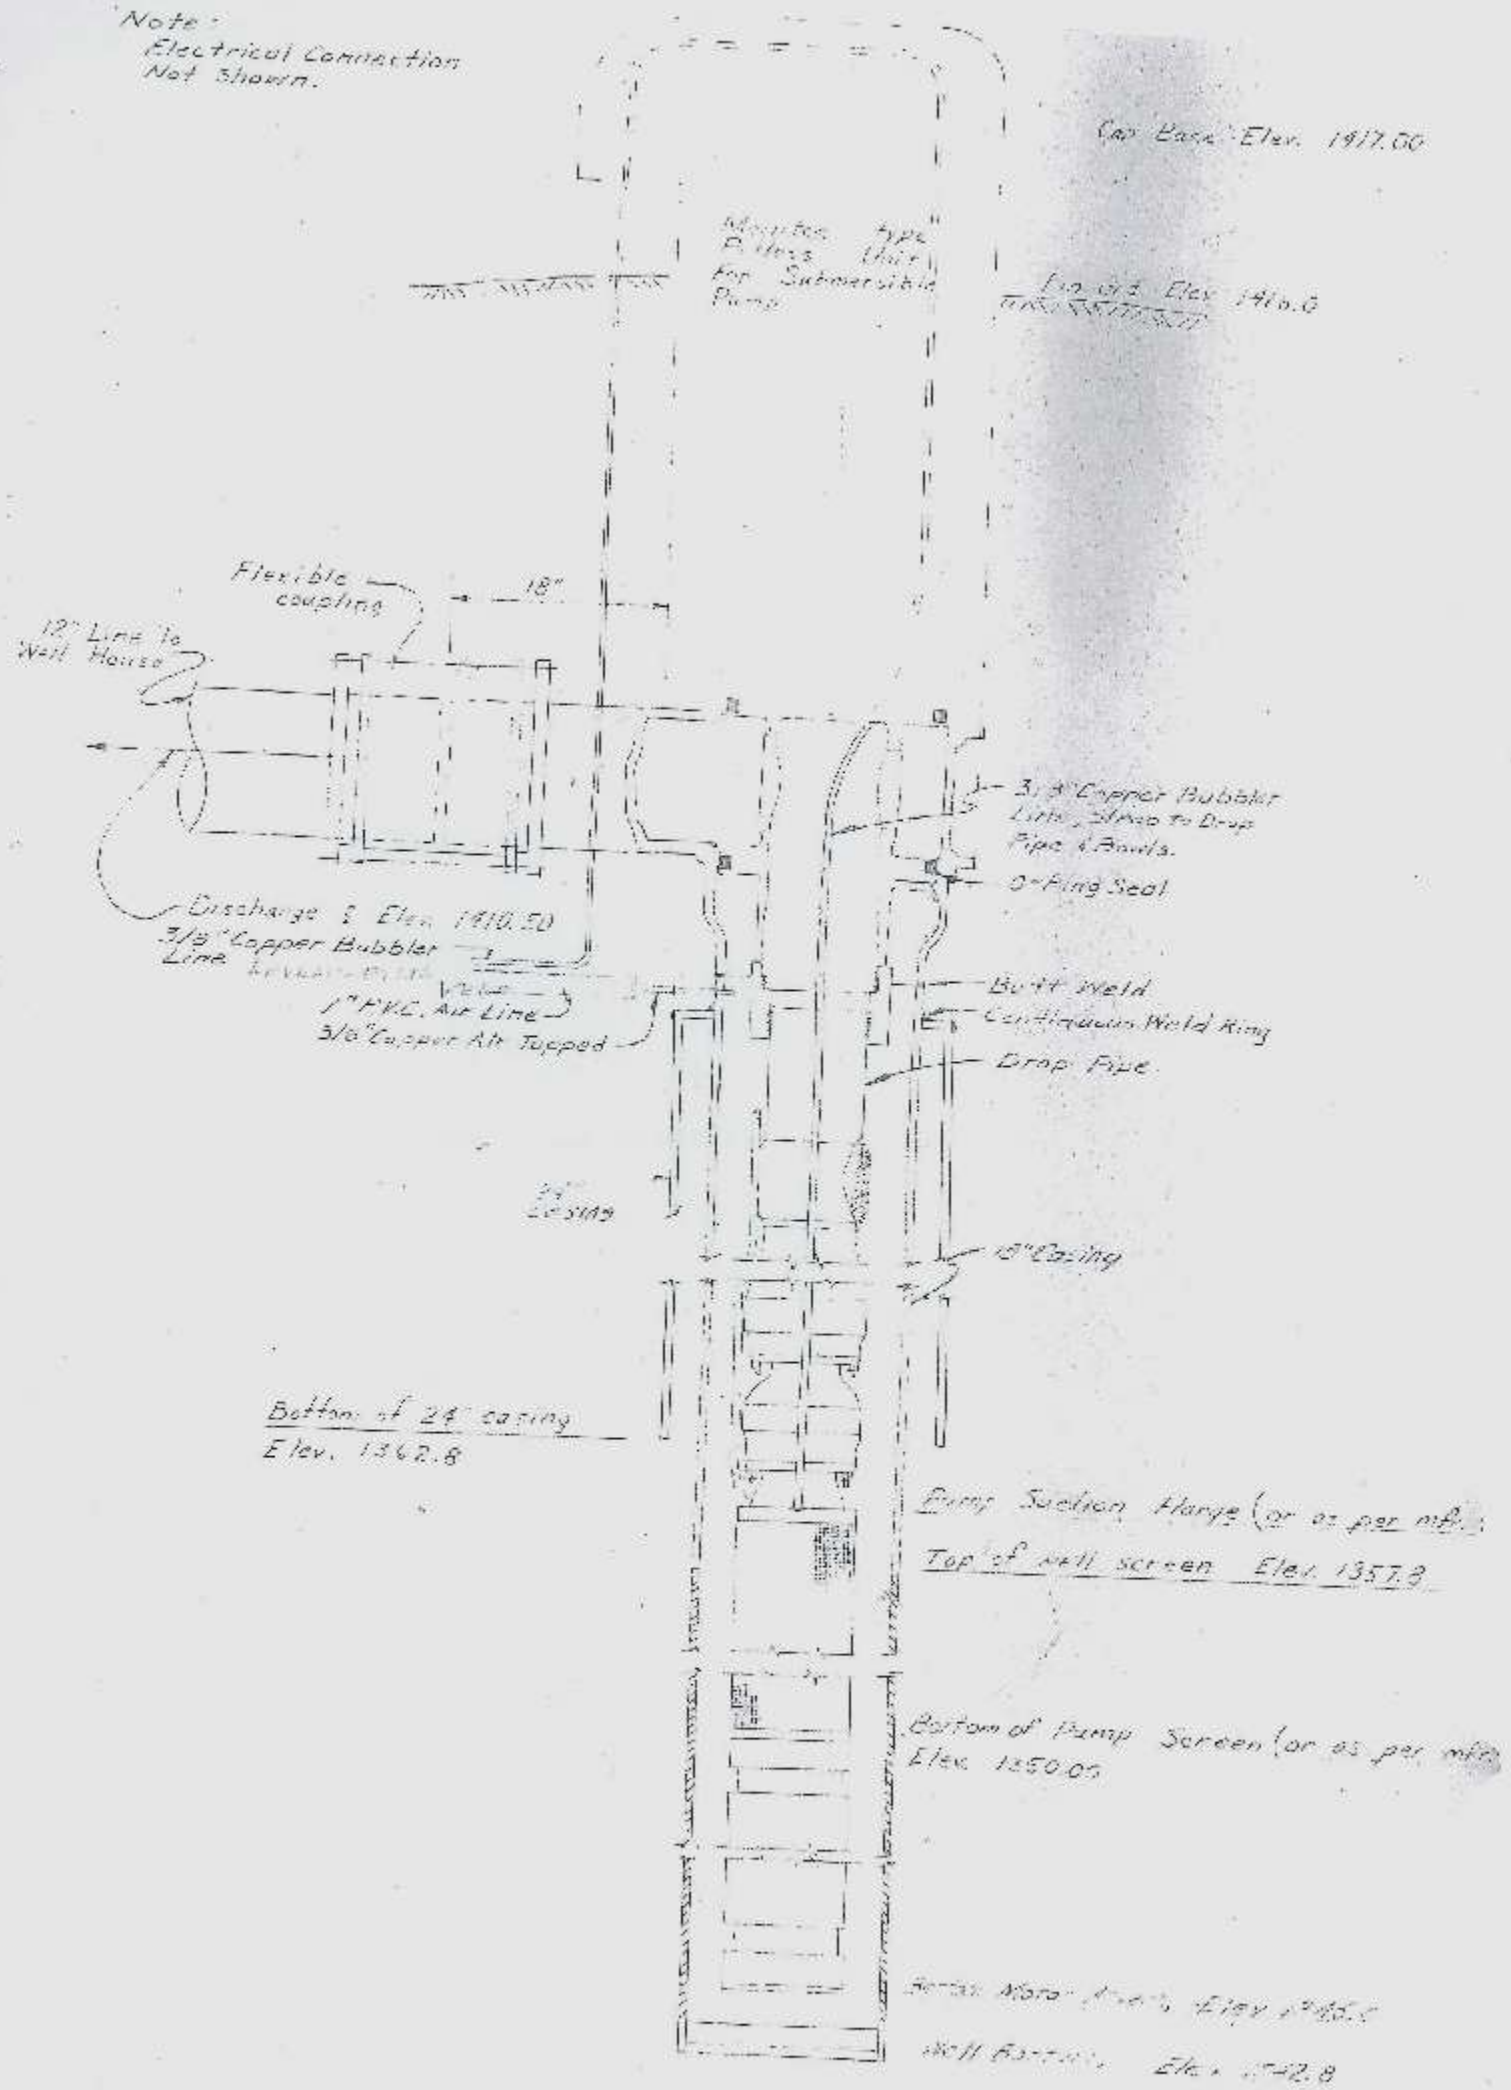 Note:
Electrical Connection
Not Shown.
Elev. 1917.00
type"
Unit
For Submersible
Pump
Elev 1916.0
18"
Flexible
coupling
12" Line To
Well House
3/8" Copper Bubbler
Line, Strap to Drop
Pipe & Bowls.
O-Ring Seal
Discharge ℄ Elev. 1910.50
3/8" Copper Bubbler
Line
1" P.V.C. Air Line
3/8" Copper Air Tapped
Butt Weld
Continuous Weld Ring
Drop Pipe
Casing
18" Casing
Bottom of 24" casing
Elev. 1362.8
Pump Suction Flange (or as per mfr.)
Top of well screen Elev. 1357.8
Bottom of Pump Screen (or as per mfr)
Elev. 1350.05
Motor Elev
Well Bottom, Elev.